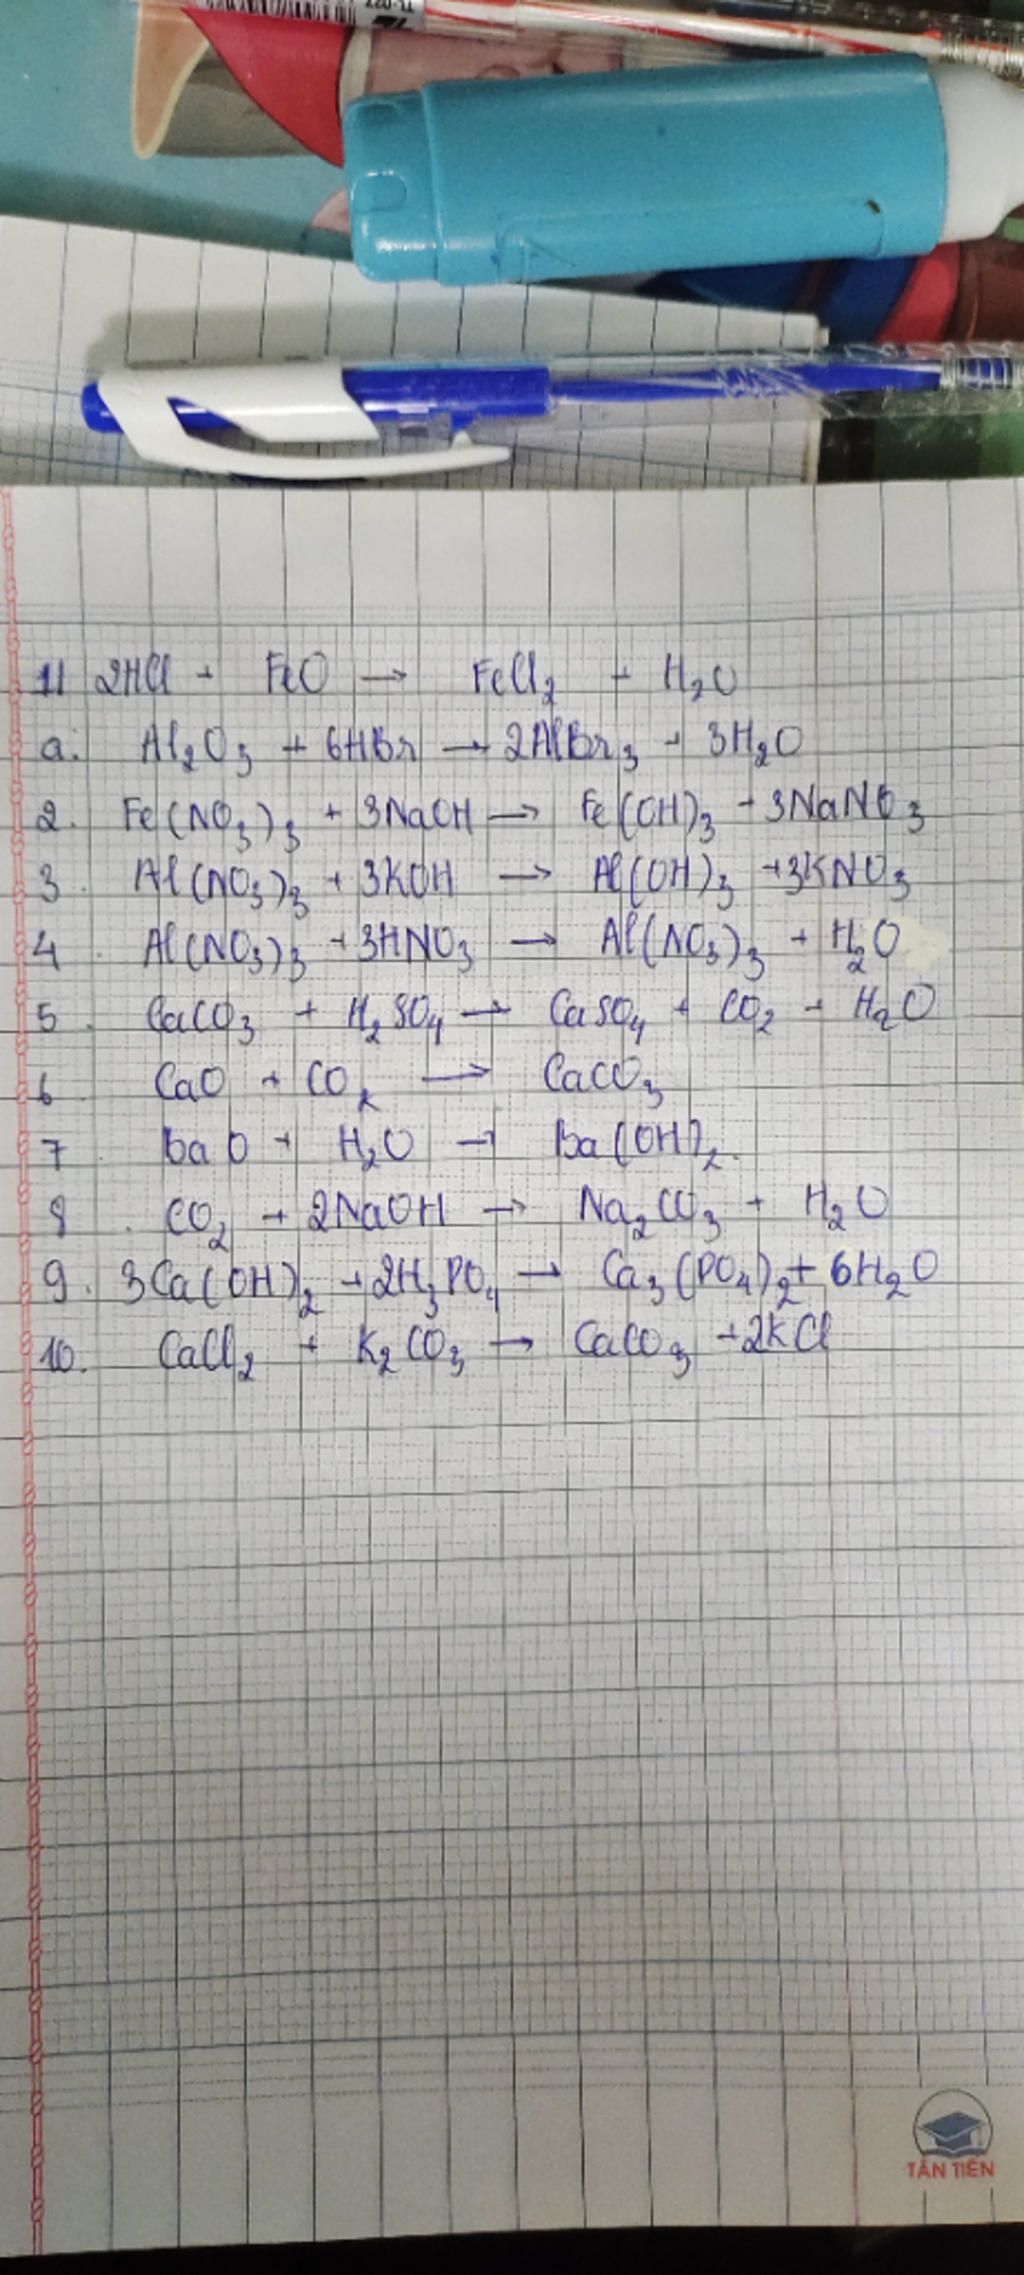 11 2HCl + FeO → FeCl₂ + H₂O
a. Al₂O₃ + 6HBr → 2AlBr₃ + 3H₂O
2. Fe(NO₃)₃ + 3NaOH → Fe(OH)₃ + 3NaNO₃
3. Al(NO₃)₃ + 3KOH → Al(OH)₃ + 3KNO₃
4. Al(NO₃)₃ + 3HNO₃ → Al(NO₃)₃ + H₂O
5. CaCO₃ + H₂SO₄ → CaSO₄ + CO₂ + H₂O
6 CaO + CO₂ → CaCO₃
7. BaO + H₂O → Ba(OH)₂.
8. CO₂ + 2NaOH → Na₂CO₃ + H₂O
9. 3Ca(OH)₂ + 2H₃PO₄ → Ca₃(PO₄)₂ + 6H₂O
10. CaCl₂ + K₂CO₃ → CaCO₃ + 2KCl
TÂN TIẾN